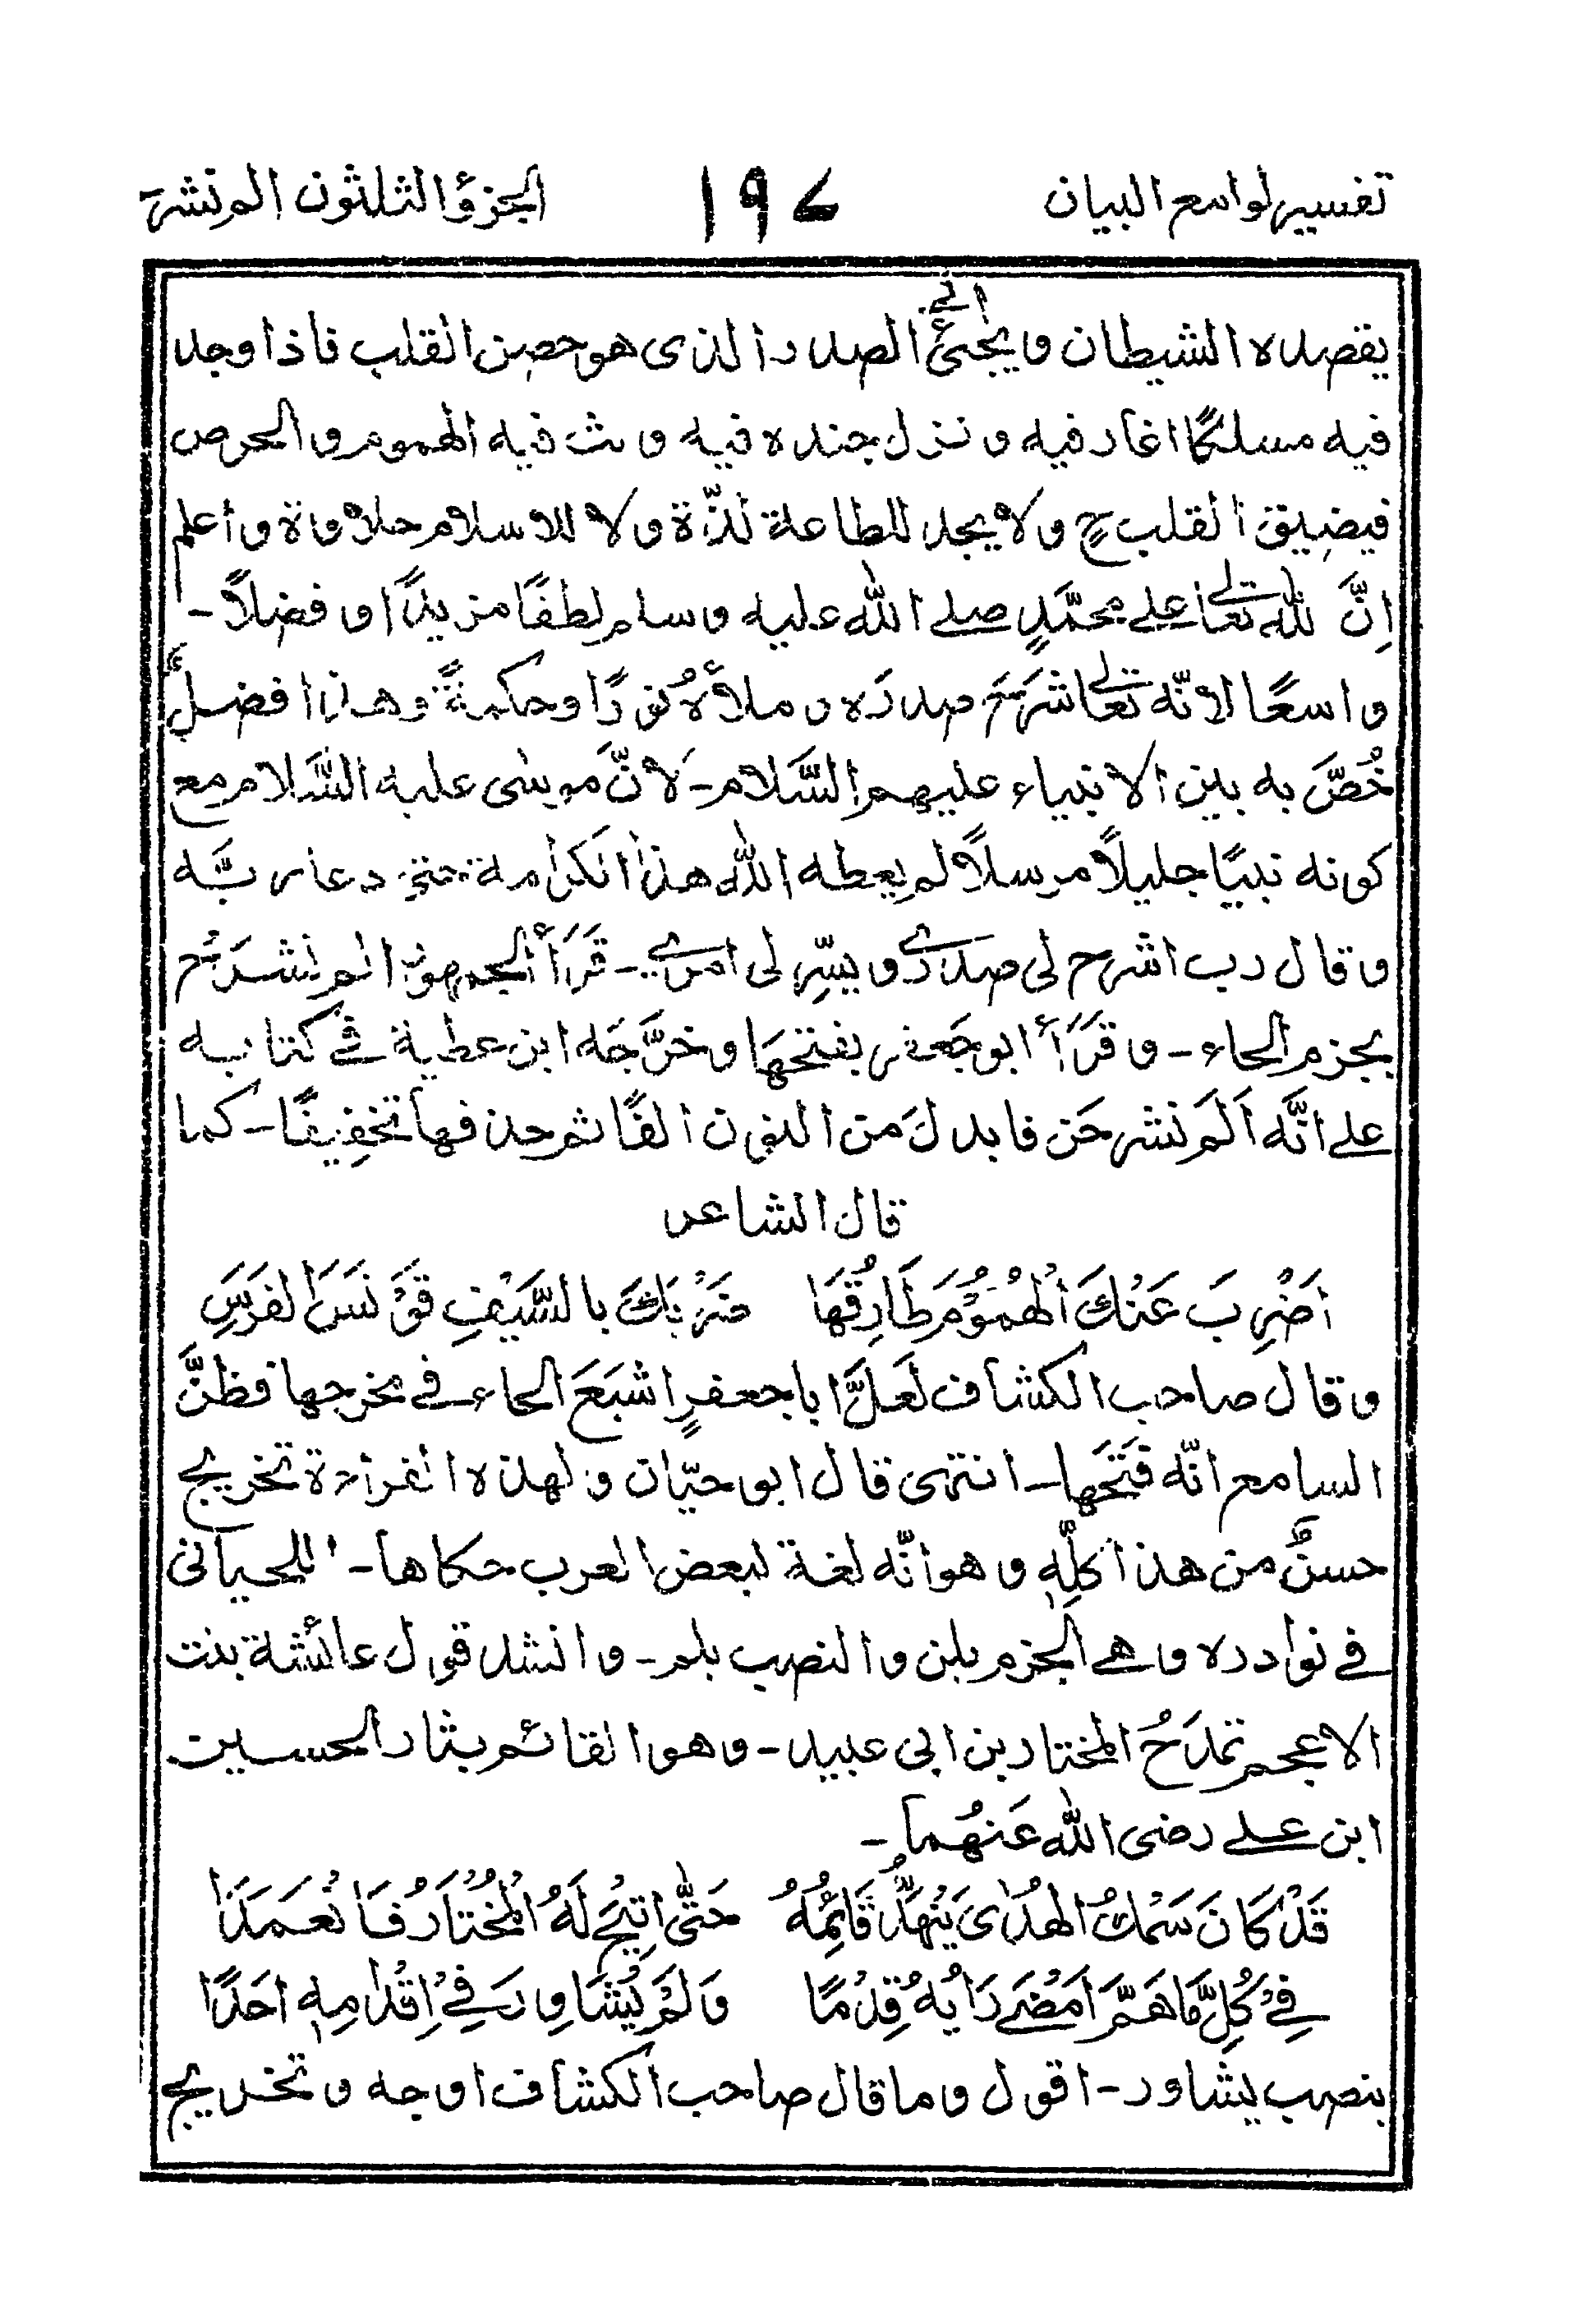 تفسير لوامع البيان ١٩٧ الجزؤ الثلثون الم نشرح
يقصده الشيطان و يجئ الى الصدر الذى هو حصن القلب فاذا وجد
فيه مسلكًا اغار فيه و نزل جنده فيه و بث فيه الهموم و الحرص
فيضيق القلب ح و لا يجد للطاعة لذّة و لا للاسلام حلاوة و أعلم
اِنَّ لله تعالى على محمّدٍ صلى الله عليه و سلم لطفًا مزيدًا و فضلاً -
واسعًا لانّه تعالى شرَحَ صدرَه و ملأهُ نورًا و حكمةً و هذا فضلٌ
خُصَّ به بين الانبياء عليهم السَّلام - لانّ موسٰى عليه السَّلام مع
كونه نبيًا جليلاً مرسلاً لم يعطه الله هذا الكرامة حتى دعا ربَّه
و قال رب اشرح لى صدرى و يسِّر لى امرى - قَرَأَ الجمهورُ الم نشرَحْ
بجزم الحاء - و قَرَأَ ابو جَعفر بفتحهَا و خرَّجَه ابن عطية فى كتابه
على انَّه اَلَم نشرحَن فابدلَ من النون الفًا ثم حذفها تخفِيفًا - كما
قال الشاعر
اَضْرِبَ عَنْكَ الْهُمُوْمَ طَارِقُهَا ضَرْبَكَ بالسَّيْفِ قَوْنَسَ الفَرَسِ
و قال صاحب الكشاف لَعَلَّ ابا جعفرٍ اشبَعَ الحاء فى مخرجها فظنَّ
السامع انّه فَتَحَها - انتهى قال ابو حيّان و لهذه القراءة تخريج
حسنٌ من هذا كلِّهٖ و هو انّه لغة لبعض العرب حكاها - اللحيانى
فى نوادره و هى الجزم بلن و النصب بلم - و انشد قول عائشة بنت
الاعجم تمدَحُ المختار بن ابى عبيد - و هو القائم بثار الحسين
ابن على رضى الله عَنهُما -
قَدْ كَانَ سَمْكُ الهُدٰى يَنْهَدُّ قَائِمُهُ حَتّٰى اتِيْحَ لَهُ الْمُخْتَارُ فَانْعَمَدَا
فِىْ كُلِّ مَا هَمَّ اَمْضٰى رَايَهُ قِدْمًا وَ لَمْ يُشَاوِرَ فِىْ اِقْدَامِهٖ اَحَدًا
بنصب يشاور - اقول و ما قال صاحب الكشاف اوجه و تخريج